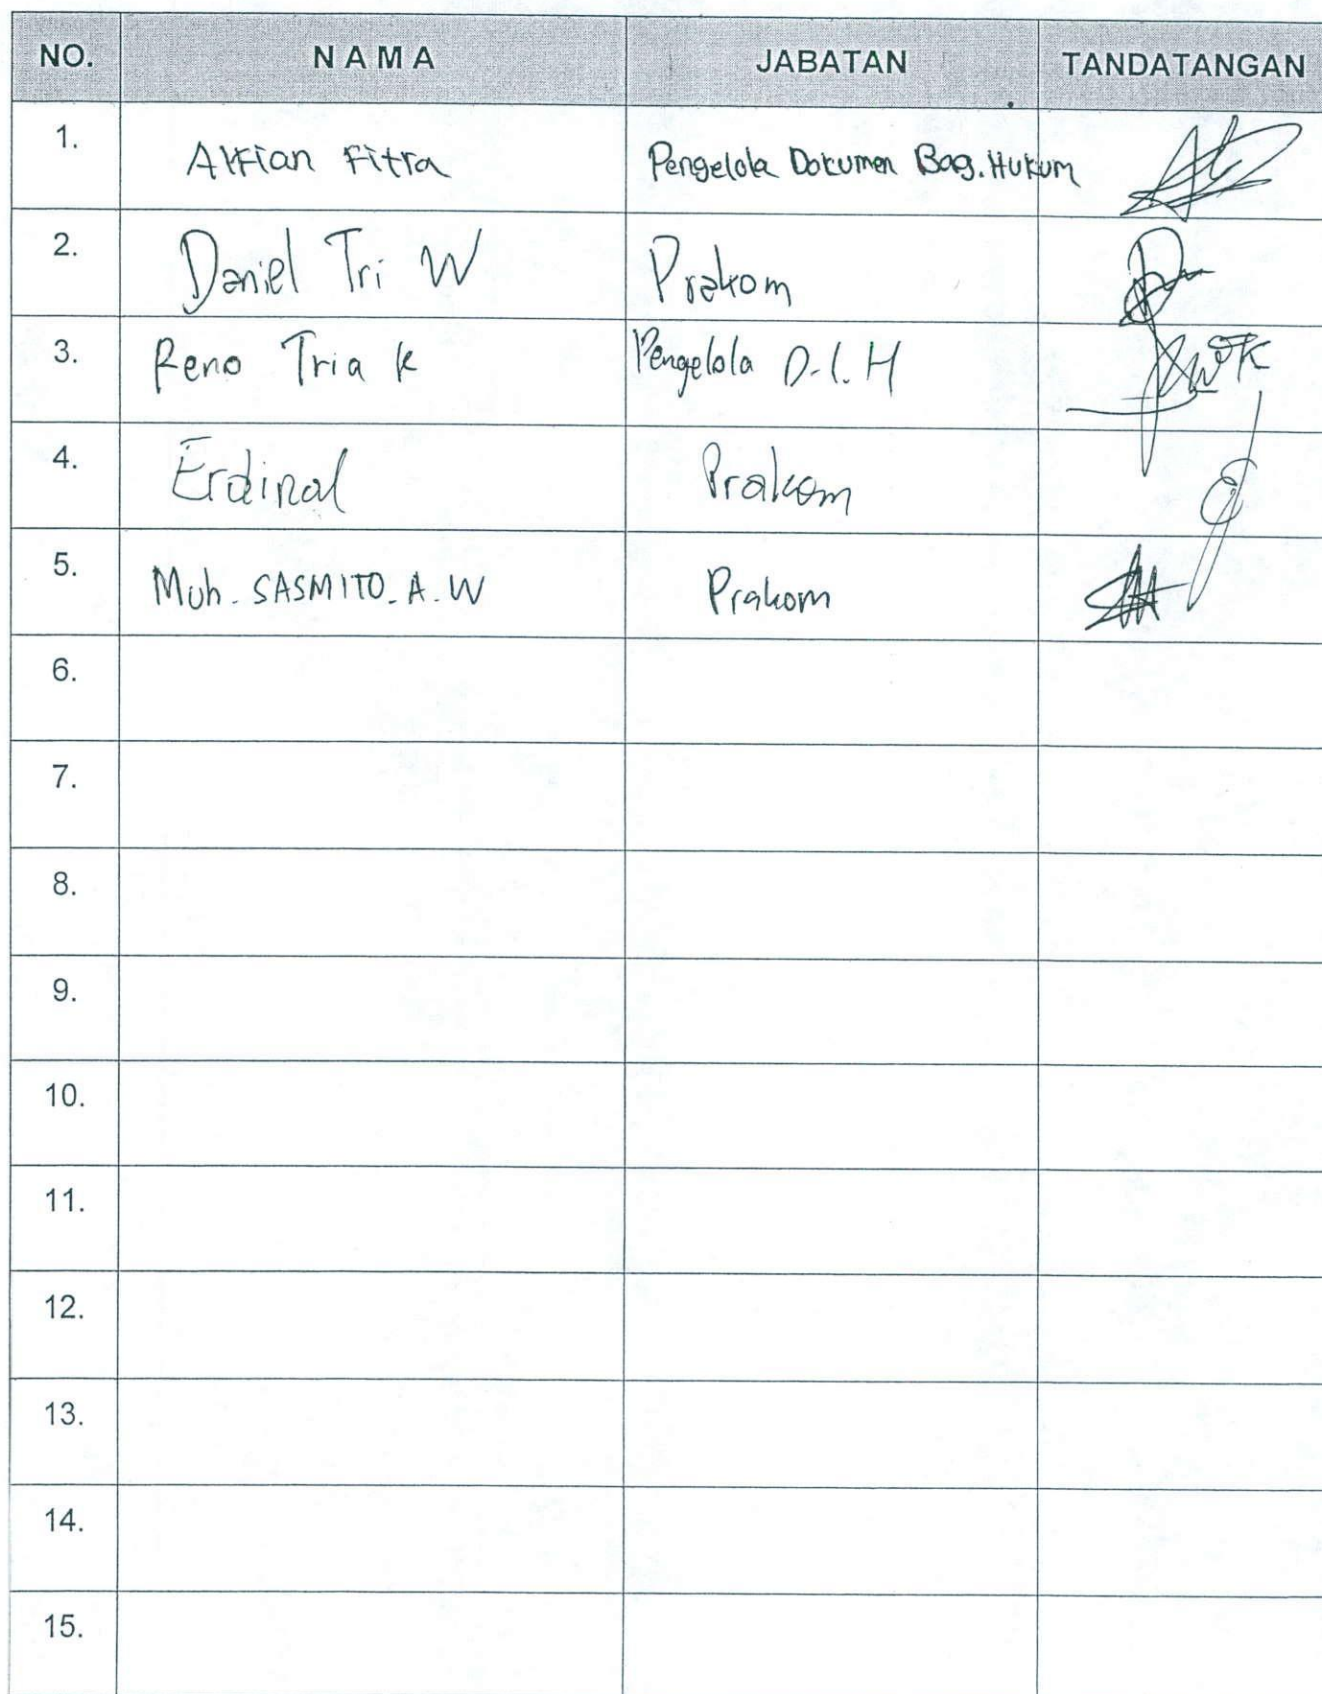 NO. N A M A JABATAN TANDATANGAN
1. Alfian Fitra Pengelola Dokumen Bag. Hukum
2. Daniel Tri W Prakom
3. Reno Tria k Pengelola D.I.H
4. Erdinal Prakom
5. Muh. SASMITO. A. W Prakom
6.
7.
8.
9.
10.
11.
12.
13.
14.
15.